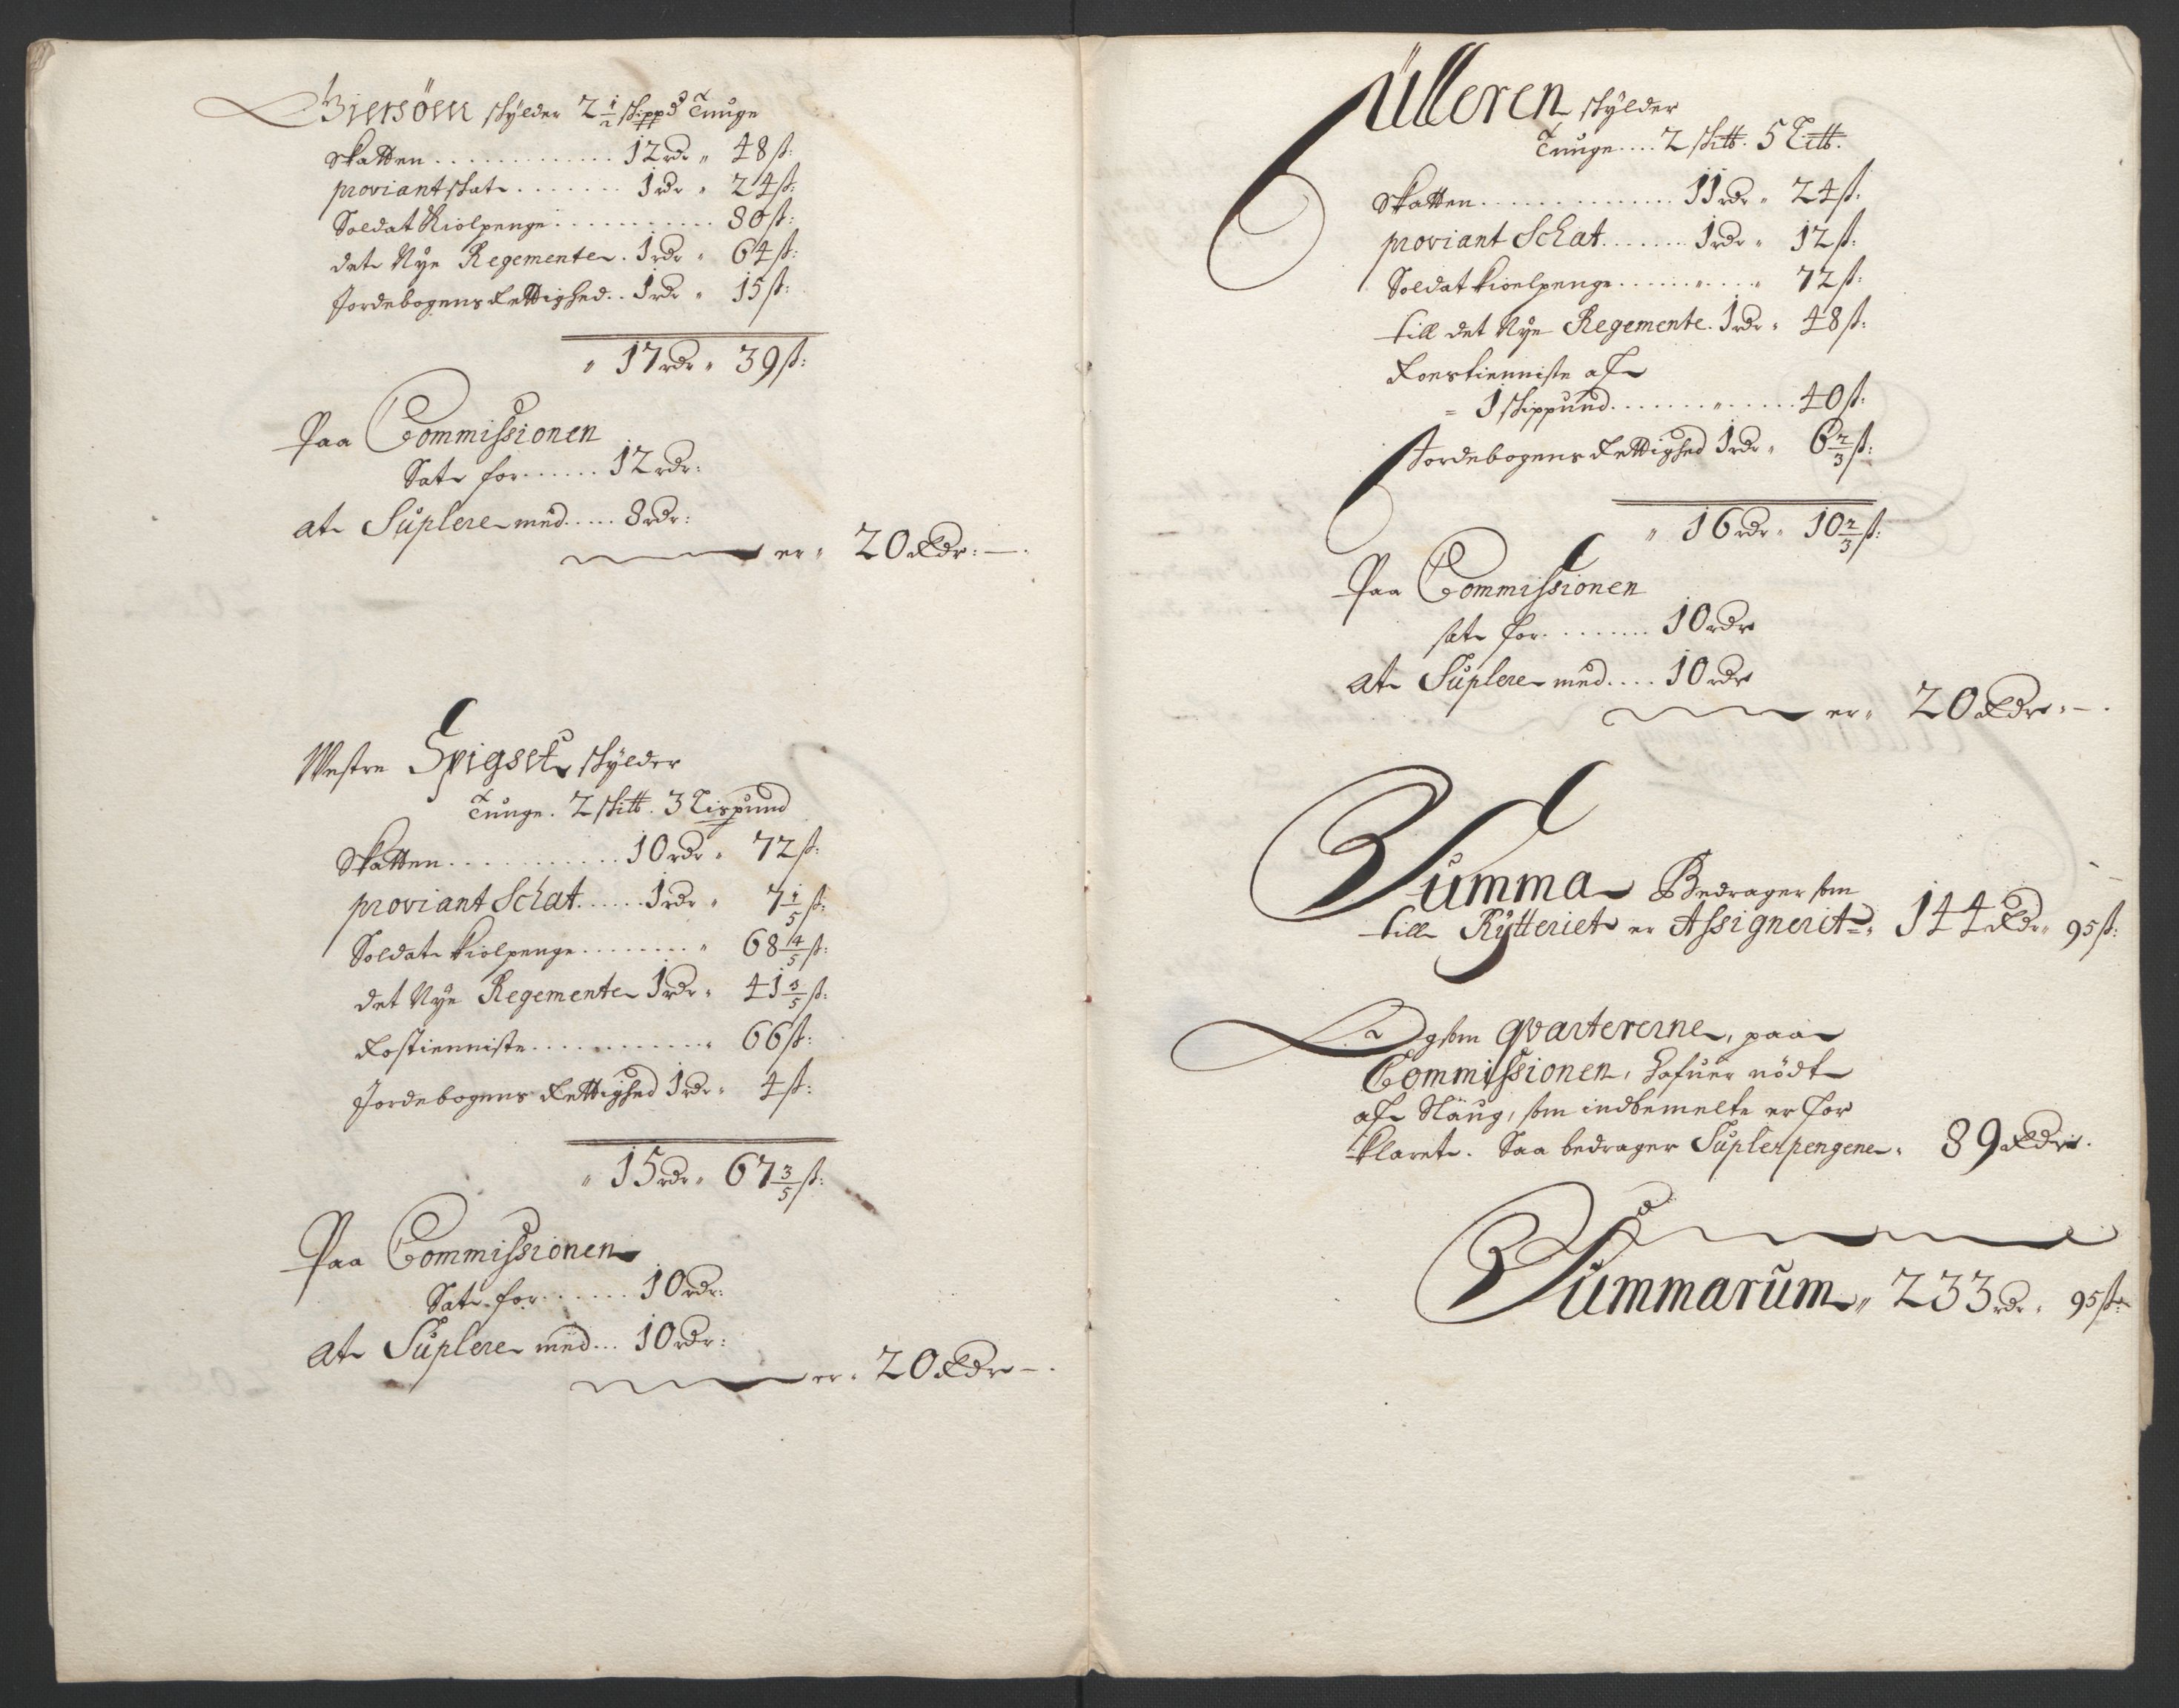 Biersöen skÿlder 2 1/2 skippd Tunge
Skatten . . . . . . . . . . . . 12 rdr „ 48 ß:
proviant skat . . . . . . . 1 rdr „ 24 ß:
Soldat Kiolpenge . . . . . . . . . . . 80 ß:
det Nÿe Regemente . 1 rdr „ 64 ß:
Jordebogens Rettighed . . 1 rdr „ 15 ß:
„ 17 rdr „ 39 ß:
Paa Commissionen
Sat for . . . . . . 12 rdr:
at Suplere med . . . . . 8 rdr:
er „ 20 Rdr: —.
Westre Spigset skÿlder
Tunge . 2 sk℔ . 3 Lispund
Skatten . . . . . . . . . . . 10 rdr „ 72 ß:
proviant Schat . . . . . . 1 rdr „ 7 1/5 ß:
Soldat kiolpenge . . . . . . . . „ 68 4/5 ß:
det Nÿe Regemente 1 rdr „ 41 3/5 ß:
Rostienniste . . . . . . . . . . . . „ 66 ß:
Jordebogens Rettighed 1 rdr „ 4 ß:
„ 15 rdr „ 67 3/5 ß:
Paa Commissionen
Sat for . . . . . . 10 rdr:
at Suplere med . . . 10 rdr:
er „ 20 Rdr — .
Ulleren skÿlder
Tunge . . . . 2 sk℔ . 5 Li℔.
Skatten . . . . . . . . . . . . . . 11 rdr „ 24 ß:
proviant Schat . . . . . . . 1 rdr „ 12 ß:
Soldat kioelpenge . . . . . „ . . . „ 72 ß:
till det Nÿe Regemente . 1 rdr „ 48 ß:
Roestienniste af
= 1 skippund . . . . . . . „ . . . . . 40 ß:
Jordebogens Rettighed 1 rdr „ 6 2/3 ß:
„ 16 rdr „ 10 2/3 ß:
Paa Commissionen
sat for . . . . . . . . 10 rdr
at Suplere med . . . . 10 rdr
er „ 20 Rdr „ — .
Summa Bedrager som
till Rÿtteriet er Assignerit „ 144 Rdr „ 95 ß:
Og som qvartererne, paa
Commissionen, hafuer nödt
af Slaug, som indbemelte er for
klaret . Saa bedrager Suplerpengene „ 89 Rdr .
Summarum „ 233 rdr „ 95 ß: